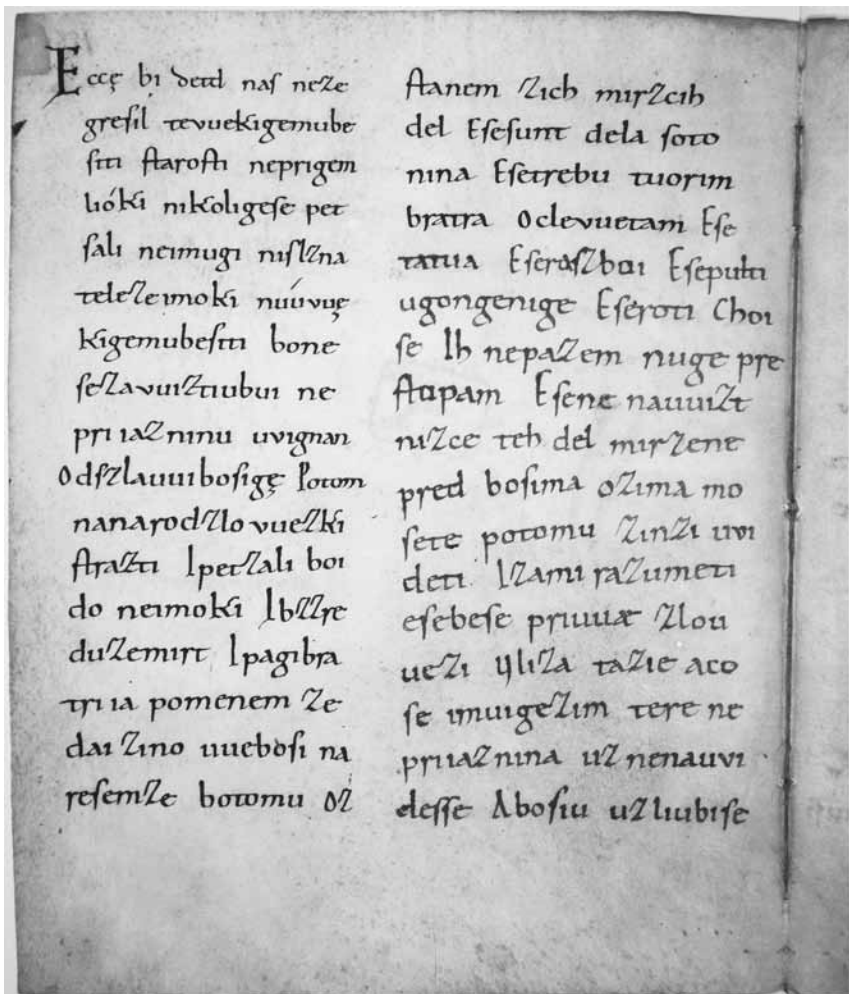 Eccę bi detd naſ neze
greſil tevuekigemube
ſiti ſtaroſti neprigem
lióki nikoligeſe pet
ſali neimugi niſlzna
telezeimoki núuvuę
kigemubeſiti bone
ſezavuiztiubui ne
priiazninu uvignan
Odſzlauuiboſigę Potom
nanarodzlovuezki
ſtrazti Ipetzali boi
do neimoki Ibzzre
duzemirt Ipagibra
triia pomenem ze
dai zino uueboſi na
reſemze botomu oz
ſtanem zich mirzcih
del Eſeſunt dela ſoto
nina Eſetrebu tuorim
bratra Oclevuetam Eſe
tatua Eſeraſzboi Eſepulti
ugongenige Eſeroti Choi
ſe Ih nepazem nuge pre
ſtopam Eſene nauuizt
nizce teh del mirzene
pred boſima ozima mo
ſete potomu zinzi uvi
deti Izami razumeti
eſebeſe priuuæ zlou
uezi Yliza tazie aco
ſe imuigezim tere ne
priiaznina uz nenauvi
deſſe Aboſiu uzliubiſe